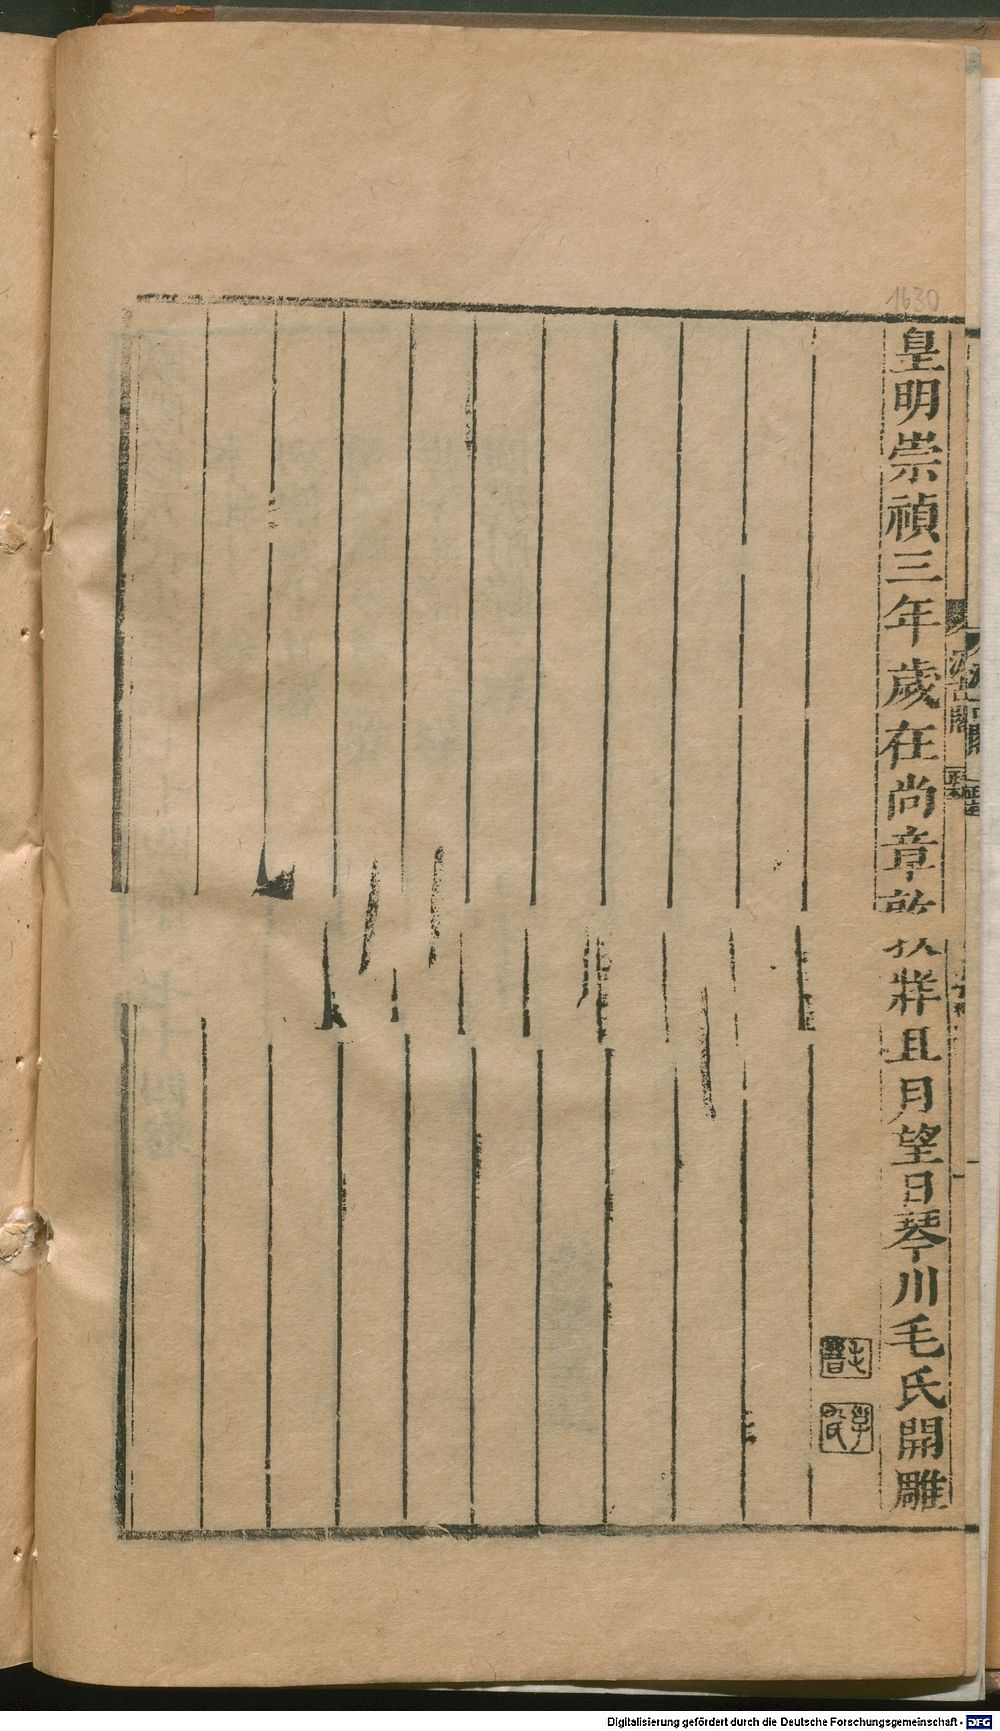 1630
皇明崇禎三年歲在尚章敦牂且月望日琴川毛氏開雕
毛晉
汲古閣
正本
Digitalisierung gefördert durch die Deutsche Forschungsgemeinschaft - DFG